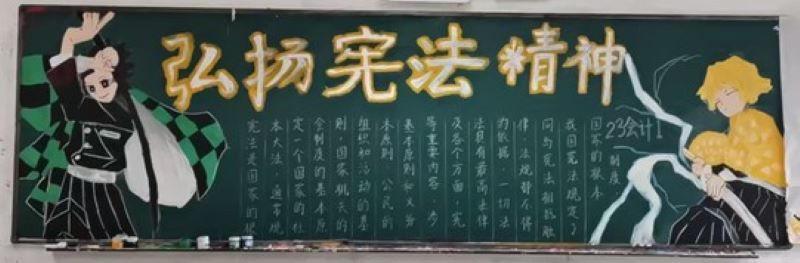 弘扬宪法精神
宪法是国家的根
本大法,通常规
定一个国家的社
会制度的基本原
则,国家机关的
组织和活动的基
本原则,公民的
基本原则和义务
等重要内容,
及各个方面,宪
法具有最高法律
为依据,一切法
律,法规都不得
同与宪法相抵触
我国宪法规定了
国家的根本
制度
23会计1